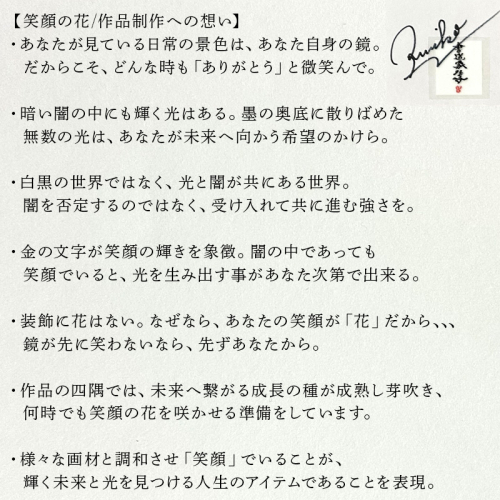 【笑顔の花/作品制作への想い】
・あなたが見ている日常の景色は、あなた自身の鏡。
だからこそ、どんな時も「ありがとう」と微笑んで。
・暗い闇の中にも輝く光はある。墨の奥底に散りばめた
無数の光は、あなたが未来へ向かう希望のかけら。
・白黒の世界ではなく、光と闇が共にある世界。
闇を否定するのではなく、受け入れて共に進む強さを。
・金の文字が笑顔の輝きを象徴。闇の中であっても
笑顔でいると、光を生み出す事があなた次第で出来る。
・装飾に花はない。なぜなら、あなたの笑顔が「花」だから、、、
鏡が先に笑わないなら、先ずあなたから。
・作品の四隅では、未来へ繋がる成長の種が成熟し芽吹き、
何時でも笑顔の花を咲かせる準備をしています。
・様々な画材と調和させ「笑顔」でいることが、
輝く未来と光を見つける人生のアイテムであることを表現。